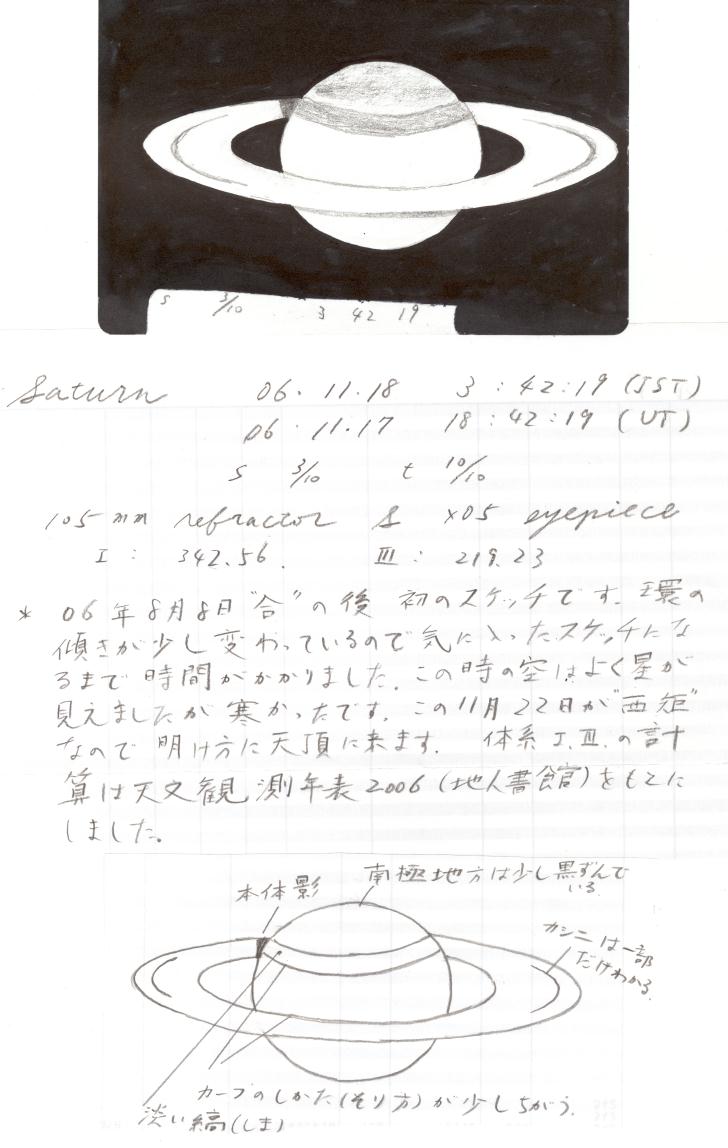 s 3/10 3 42 19
Saturn 06.11.18 3:42:19 (JST)
06.11.17 18:42:19 (UT)
s 3/10 t 10/10
105mm refractor & ×05 eyepiece
I: 342.56. III: 219.23
* 06年8月8日"合"の後 初のスケッチです. 環の
傾きが少し変わっているので気に入ったスケッチにな
るまで時間がかかりました. この時の空はよく星が
見えましたが寒かったです. この11月22日が"西矩"
なので明け方に天頂に来ます. 体系I.III.の計
算は天文観測年表2006(地人書館)をもとに
しました.
南極地方は少し黒ずんで
いる.
本体影
カシニは一部
だけわかる.
カーブのしかた(そり方)が少しちがう.
淡い縞(しま)